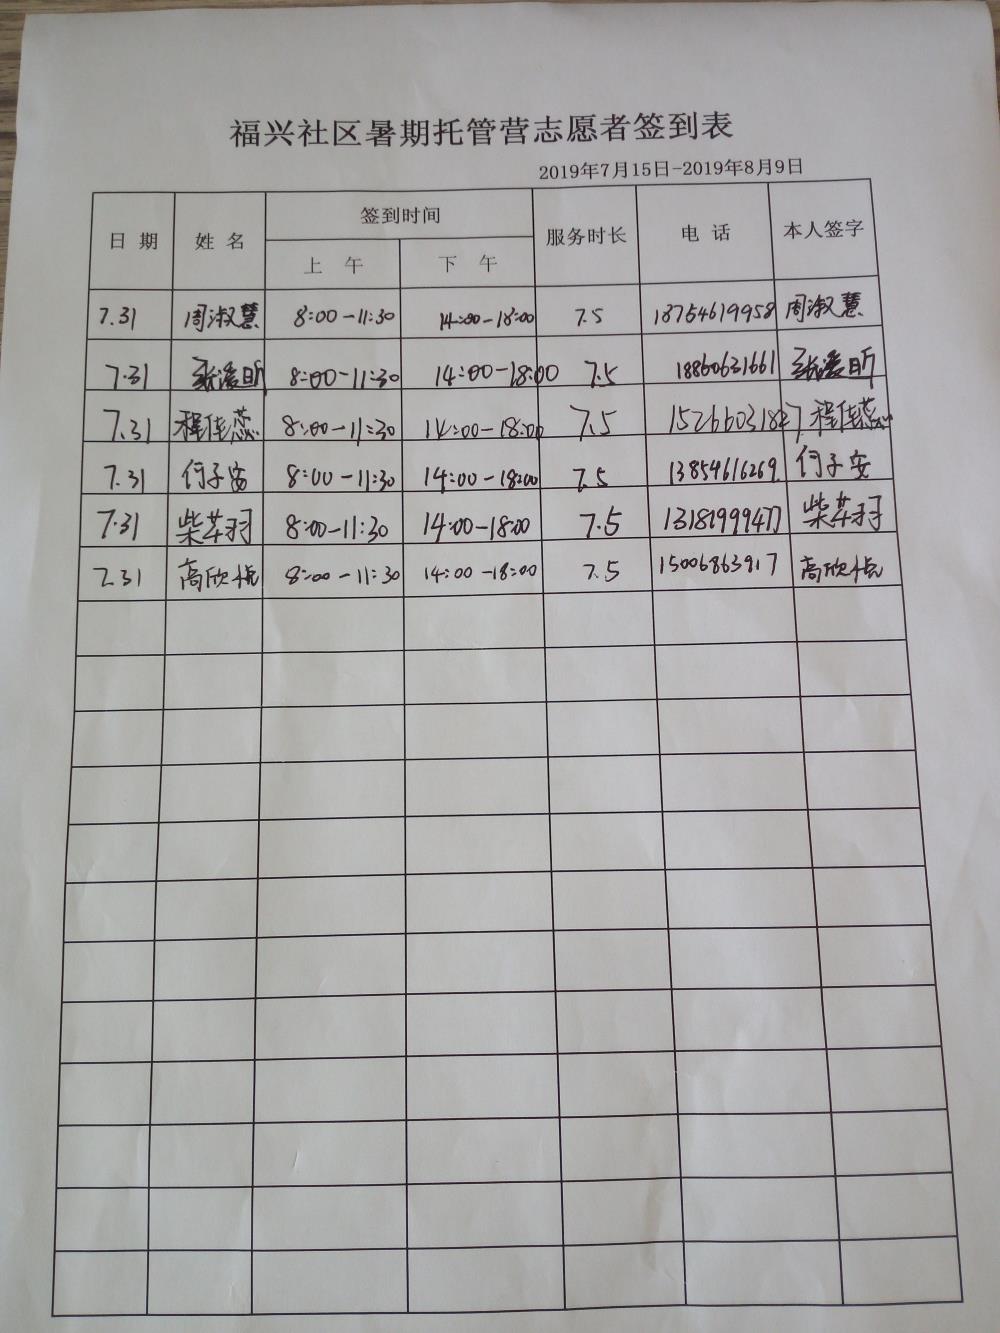 福兴社区暑期托管营志愿者签到表
2019年7月15日-2019年8月9日
日 期 姓 名 签到时间 服务时长 电 话 本人签字
上 午 下 午
7.31 周淑慧 8:00-11:30 14:00-18:00 7.5 18754619958 周淑慧
7.31 8:00-11:30 14:00-18:00 7.5 18860631661
7.31 程佳蕊 8:00-11:30 14:00-18:00 7.5 程佳蕊
7.31 何子安 8:00-11:30 14:00-18:00 7.5 13854616269 何子安
7.31 8:00-11:30 14:00-18:00 7.5 13181999477
7.31 高欣悦 8:00-11:30 14:00-18:00 7.5 15006863917 高欣悦